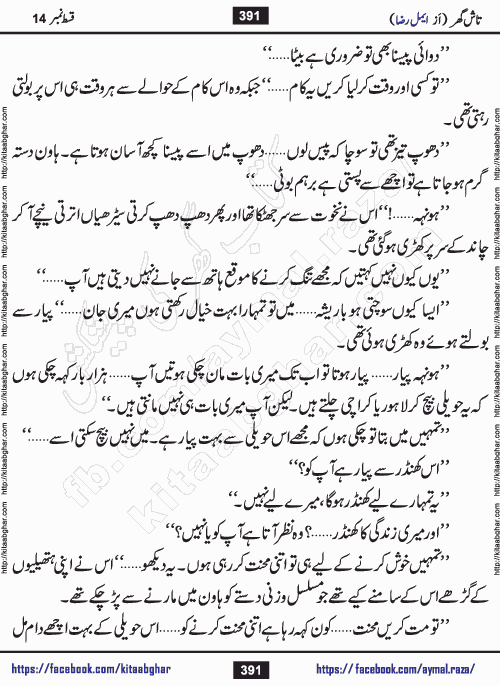 تاش گھر (از ایمل رضا)
391
قسط نمبر 14
’’دوائی پیسنا بھی تو ضروری ہے بیٹا......‘‘
’’تو کسی اور وقت کر لیا کریں یہ کام......‘‘ جبکہ وہ اس کام کے حوالے سے ہر وقت ہی اس پر بولتی
رہتی تھی۔
’’دھوپ تیز تھی تو سوچا کہ پیس لوں......دھوپ میں اسے پیسنا کچھ آسان ہوتا ہے۔ ہاون دستہ
گرم ہو جاتا ہے تو اچھے سے پستی ہے برہم بوٹی......‘‘
’’ہونہہ......!‘‘ اس نے نخوت سے سر جھٹکا تھا اور پھر دھپ دھپ کرتی سیڑھیاں اترتی نیچے آ کر
چاند کے سر پر کھڑی ہو گئی تھی۔
’’یوں کیوں نہیں کہتیں کہ مجھے تنگ کرنے کا موقع ہاتھ سے جانے نہیں دیتی ہیں آپ......‘‘
’’ایسا کیوں سوچتی ہو باریشہ......میں تو تمہارا بہت خیال رکھتی ہوں میری جان......‘‘ پیار سے
بولتے ہوئے وہ کھڑی ہوئی تھی۔
’’ہونہہ پیار...... پیار ہوتا تو اب تک میری بات مان چکی ہوتیں آپ...... ہزار بار کہہ چکی ہوں
کہ یہ حویلی بیچ کر لاہور یا کراچی چلتے ہیں۔ لیکن آپ میری بات ہی نہیں مانتی ہیں۔‘‘
’’تمہیں میں بتا تو چکی ہوں کہ مجھے اس حویلی سے بہت پیار ہے۔ میں نہیں بیچ سکتی اسے......‘‘
’’اس کھنڈر سے پیار ہے آپ کو؟‘‘
’’یہ تمہارے لیے کھنڈر ہو گا، میرے لیے نہیں۔‘‘
’’اور میری زندگی کا کھنڈر......؟ وہ نظر آتا ہے آپ کو یا نہیں؟‘‘
’’تمہیں خوش کرنے کے لیے ہی تو اتنی محنت کر رہی ہوں۔ یہ دیکھو......‘‘ اس نے اپنی ہتھیلیوں
کے گڑھے اس کے سامنے کیے تھے جو مسلسل وزنی دستے کو ہاون میں مارنے سے پڑ چکے تھے۔
’’تو مت کریں محنت......کون کہہ رہا ہے اتنی محنت کرنے کو......اس حویلی کے بہت اچھے دام مل
https://facebook.com/kitaabghar
391
https://facebook.com/aymal.raza/
http://kitaabghar.com
http://kitaabghar.com
fb.com/aymal.raza
kitaabghar.com